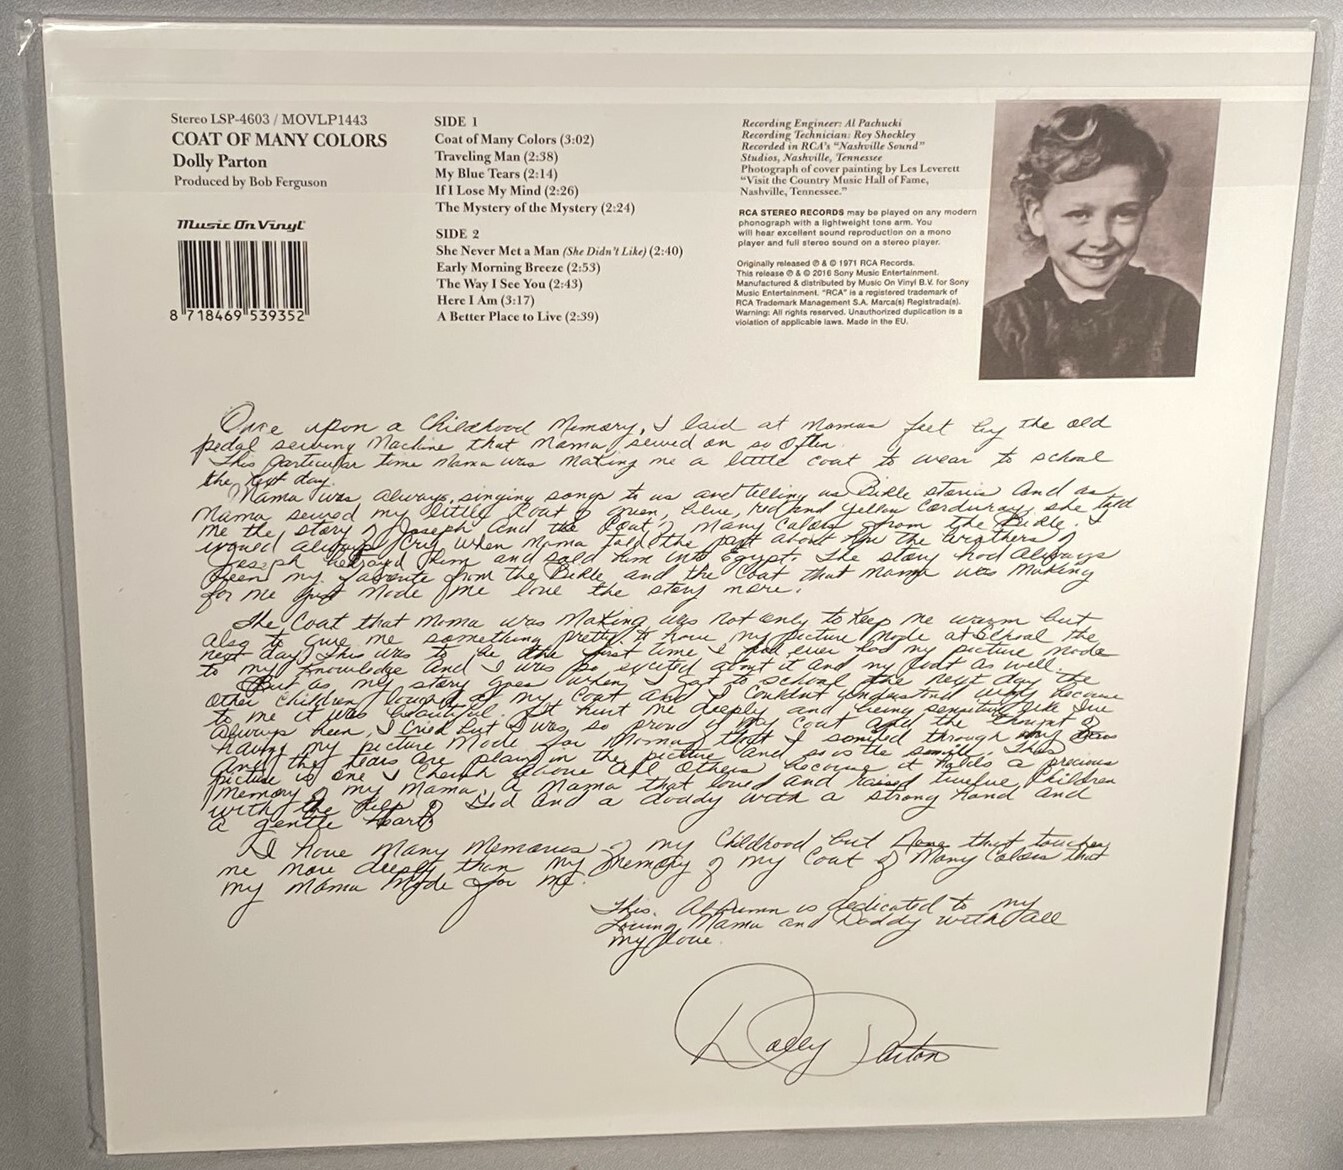 Stereo LSP-4603 / MOVLP1443
COAT OF MANY COLORS
Dolly Parton
Produced by Bob Ferguson
Music On Vinyl
8 718469 539352
SIDE 1
Coat of Many Colors (3:02)
Traveling Man (2:38)
My Blue Tears (2:14)
If I Lose My Mind (2:26)
The Mystery of the Mystery (2:24)
SIDE 2
She Never Met a Man (She Didn't Like) (2:40)
Early Morning Breeze (2:53)
The Way I See You (2:43)
Here I Am (3:17)
A Better Place to Live (2:39)
Recording Engineer: Al Pachucki
Recording Technician: Roy Shockley
Recorded in RCA's "Nashville Sound"
Studios, Nashville, Tennessee
Photograph of cover painting by Les Leverett
"Visit the Country Music Hall of Fame,
Nashville, Tennessee."
RCA STEREO RECORDS may be played on any modern
phonograph with a lightweight tone arm. You
will hear excellent sound reproduction on a mono
player and full stereo sound on a stereo player.
Originally released ℗ & © 1971 RCA Records.
This release ℗ & © 2016 Sony Music Entertainment.
Manufactured & distributed by Music On Vinyl B.V. for Sony
Music Entertainment. "RCA" is a registered trademark of
RCA Trademark Management S.A. Marca(s) Registrada(s).
Warning: All rights reserved. Unauthorized duplication is a
violation of applicable laws. Made in the EU.
Once upon a Childhood Memory, I laid at Mamas feet by the old
pedal sewing Machine that Mama sewed on so often.
This particular time Mama was Making me a little coat to wear to school
the next day.
Mama was always singing songs to us and telling us Bible stories and as
Mama sewed my little Coat of green, blue, red and yellow Corduroy, she told
me the story of Joseph and the Coat of Many Colors from the Bible. I
would always cry when Mama told the part about how the brothers of
Joseph betrayed him and sold him into Egypt. The story had always
been my favorite from the Bible and the Coat that Mama was Making
for me just Made me love the story more.
The Coat that Mama was Making was not only to Keep me warm but
also to give me something pretty to have my picture Made at School the
next day. This was to be the first time I had ever had my picture made
to my knowledge and I was so excited about it and my coat as well.
But as my story goes when I got to school the next day the
other children laughed at my Coat and I couldn't understand why because
to me it was beautiful. It hurt me deeply and being sensitive like I've
always been, I cried but I was so proud of my coat and the thought of
having my picture Made for Mama that I smiled through my tears
and the tears are plain in the picture and so is the smile. This
picture is one I cherish above all others because it holds a precious
Memory of my Mama. A Mama that loved and raised twelve Children
with the help of God and a daddy with a strong hand and
a gentle heart.
I have Many Memories of my Childhood but None that touches
me more deeply than my Memory of my Coat of Many Colors that
my Mama Made for me.
This Album is dedicated to my
Loving Mama and Daddy with all
my love.
Dolly Parton